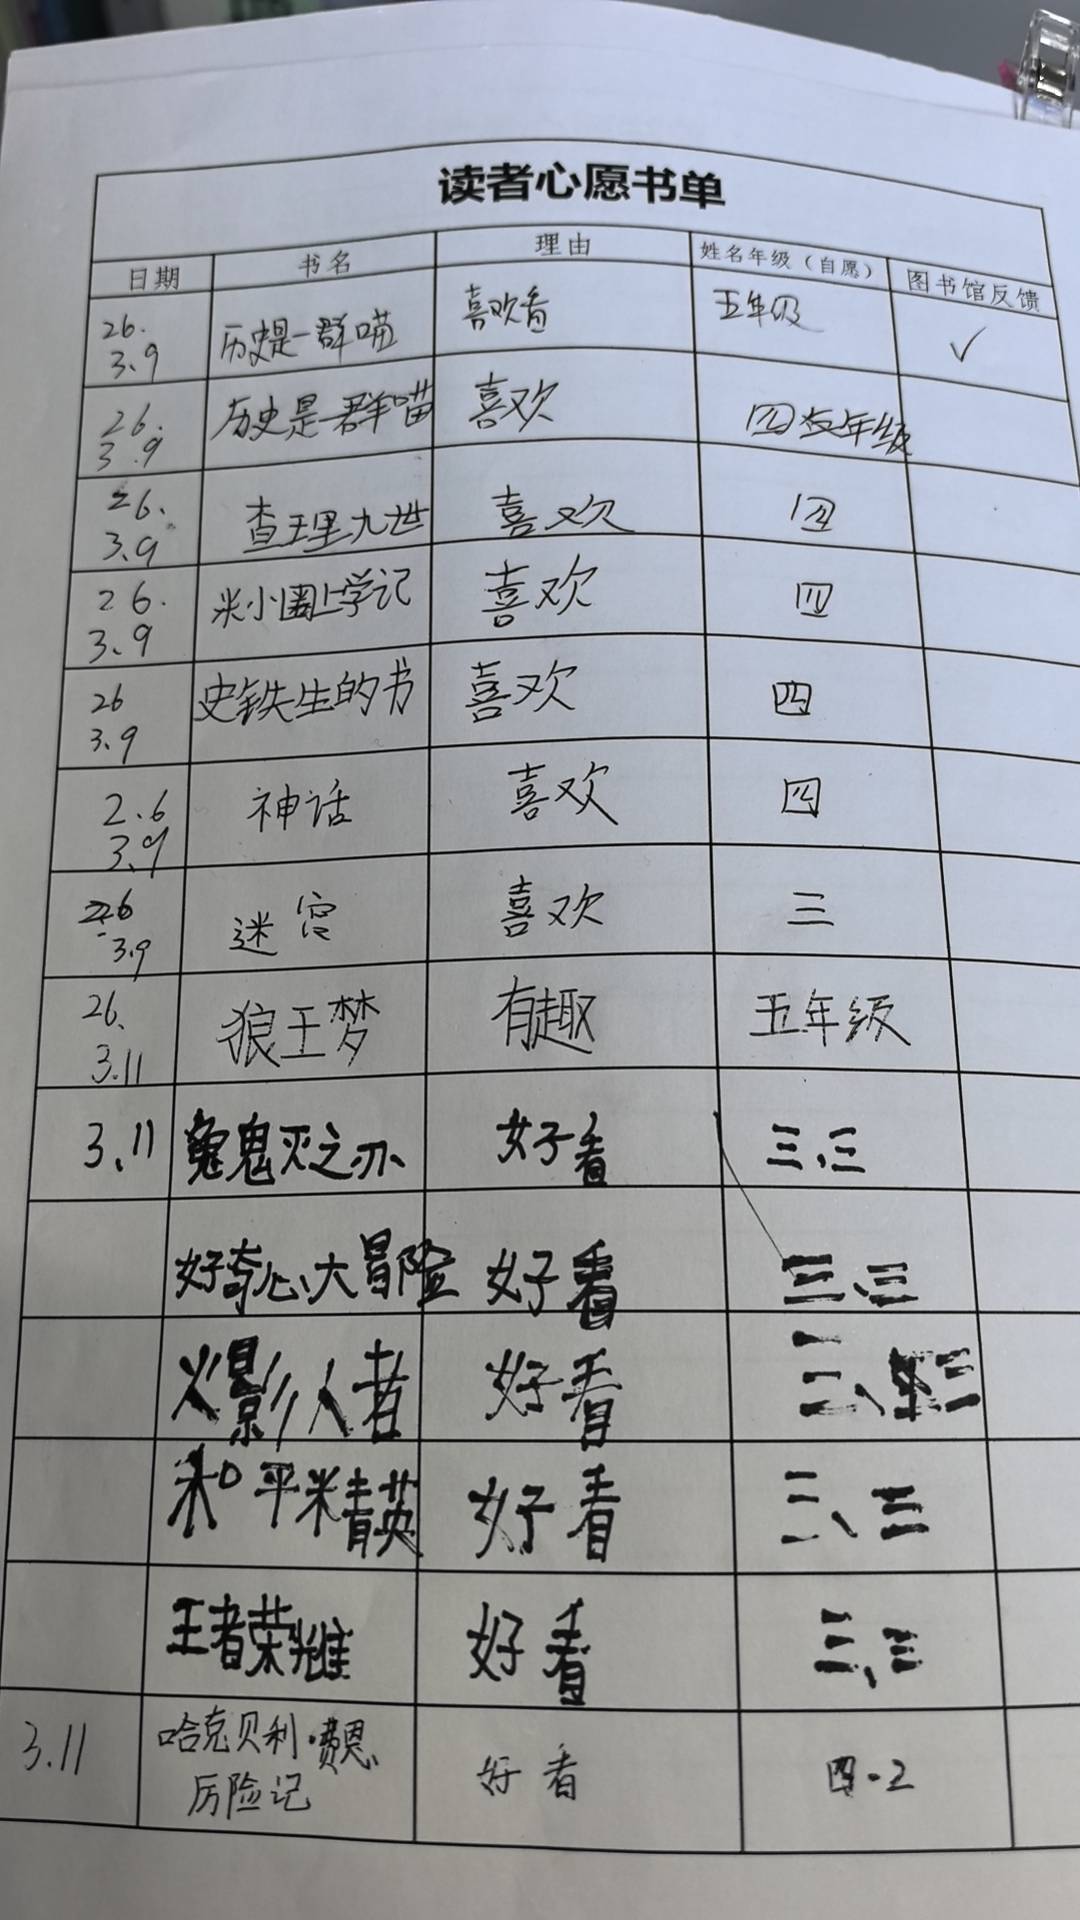 读者心愿书单
日期 书名 理由 姓名年级（自愿） 图书馆反馈
26.3.9 历史是一群喵 喜欢看 五年级 ✓
26.3.9 历史是一群喵 喜欢 四年级
26.3.9 查理九世 喜欢 四
26.3.9 米小圈上学记 喜欢 四
26 3.9 史铁生的书 喜欢 四
2.6 3.9 神话 喜欢 四
26 3.9 迷宫 喜欢 三
26.3.11 狼王梦 有趣 五年级
3.11 鬼灭之刃 好看 三、三
好奇心大冒险 好看 三、三
火影人者 好看 三、三
和平精英 好看 三、三
王者荣耀 好看 三、三
3.11 哈克贝利·费恩 好看 四·2
历险记